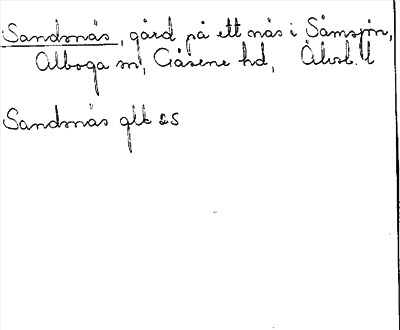 Sandsnäs, gård på ett näs i Såmsjön,
Alboga sn, Gäsene hd, Älvsb. l
Sandsnäs glk 25